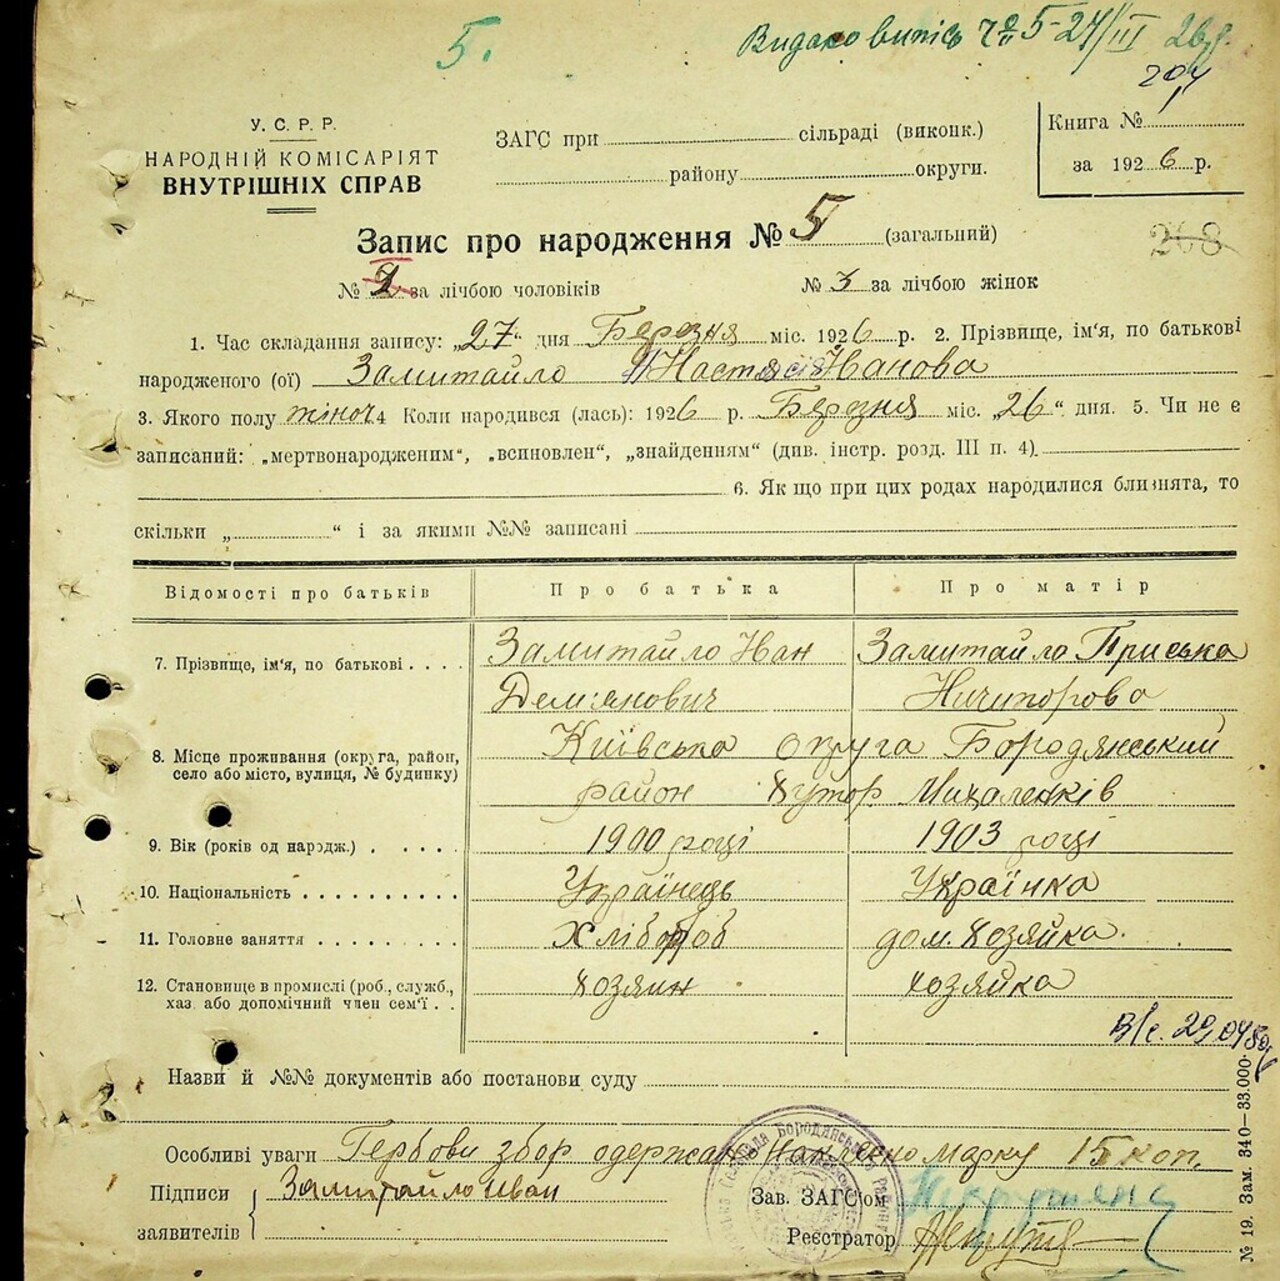 5.
Видано випісь ч 5 - 24/III 26 р.
204
У. С. Р. Р.
НАРОДНІЙ КОМІСАРІЯТ
ВНУТРІШНІХ СПРАВ
ЗАГС при сільраді (виконк.)
району округи.
Книга №
за 1926 р.
Запис про народження № 5 (загальний)
208
№ 2 за лічбою чоловіків № 3 за лічбою жінок
1. Час складання запису: „27“ дня Березня міс. 1926 р. 2. Прізвище, ім‘я, по батькові
народженого (ої) Замитайло Настасія Иванова
3. Якого полу жіноч 4 Коли народився (лась): 1926 р. Березня міс. „26“ дня. 5. Чи не є
записаний: „мертвонародженим“, „всиновлен“, „знайденням“ (див. інстр. розд. III п. 4)
6. Як що при цих родах народилися близнята, то
скільки „ “ і за якими №№ записані
Відомості про батьків Про батька Про матір
7. Прізвище, ім‘я, по батькові . . . . Замитайло Иван Замитайло Приська
Дем'янович Ничипорова
8. Місце проживання (округа, район, Київська округа Бородянський
село або місто, вулиця, № будинку) район Хутор Михаленків
9. Вік (років од народж.) . . . . . 1900 році 1903 році
10. Національність . . . . . . . . . . Українець Українка
11. Головне заняття . . . . . . . . . Хлібороб дом. хозяйка.
12. Становище в промислі (роб., службр., хозяин хозяйка
хаз. або допомічний член сем‘ї . .
В/с. 29.04.50
Назви й №№ документів або постанови суду
Особливі уваги Гербови збор одержано наклеєно марку 15 коп.
Підписи Замитайло Иван Зав. ЗАГС‘ом
заявителів Реєстратор
№ 19. Зам. 340—33.000.